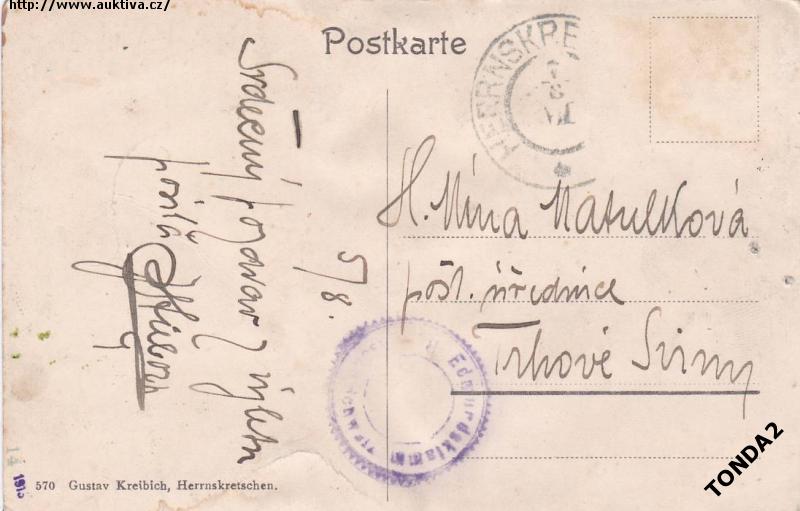 http://www.auktiva.cz/
Postkarte
HERRNSKRE
Srdečný pozdrav z výletu
posílá
5/8.
Sl. Mína Matulková
pošt. úřednice
Trhové Sviny
Edmundsklamm
570 Gustav Kreibich, Herrnskretschen.
TONDA2